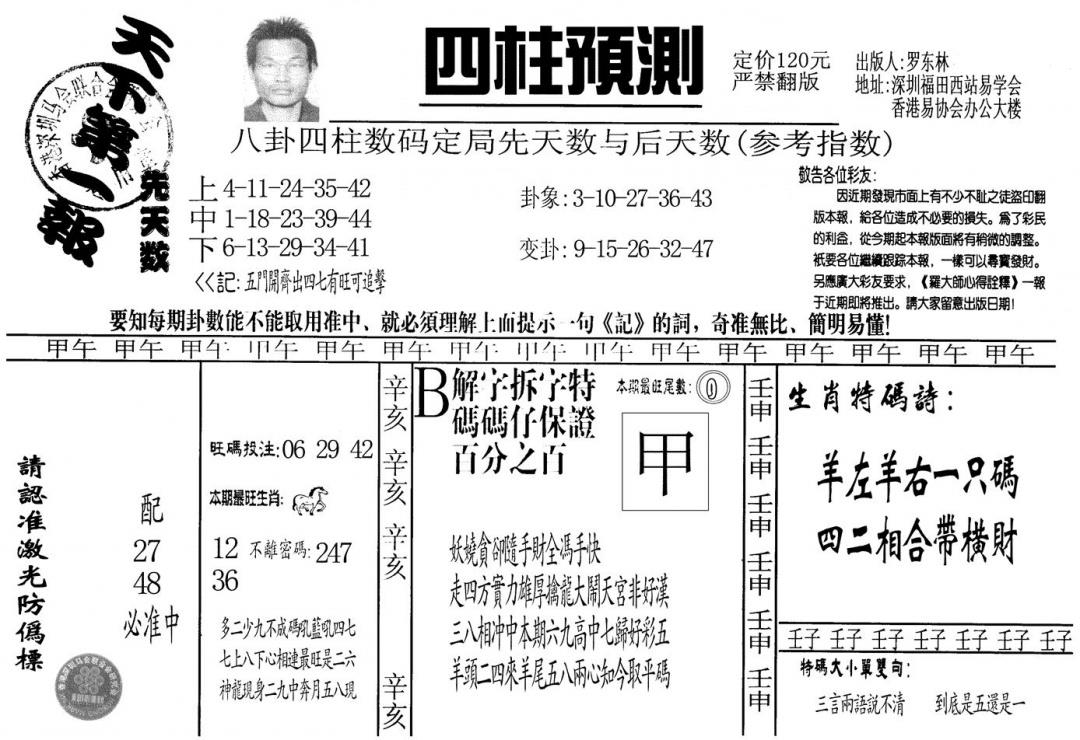 天下第一報
四柱預測
定价120元
严禁翻版
出版人:罗东林
地址:深圳福田西站易学会
香港易协会办公大楼
八卦四柱数码定局先天数与后天数(参考指数)
先天数
上 4-11-24-35-42
中 1-18-23-39-44
下 6-13-29-34-41
<<記:五門開齊出四七有旺可追擊
卦象:3-10-27-36-43
变卦:9-15-26-32-47
敬告各位彩友:
因近期發現市面上有不少不耻之徒盜印翻
版本報,給各位造成不必要的損失。爲了彩民
的利益,從今期起本報版面將有稍微的調整。
衹要各位繼續跟踪本報,一樣可以尋寶發財。
另應廣大彩友要求,《羅大師心得詮釋》一報
于近期即將推出。請大家留意出版日期!
要知每期卦數能不能取用准中、就必須理解上面提示一句《記》的詞,奇准無比、簡明易懂!
甲午 甲午 甲午 甲午 甲午 甲午 甲午 甲午 甲午 甲午 甲午 甲午 甲午 甲午 甲午
請認准激光防僞標
配
27
48
必准中
旺碼投注:06 29 42
本期最旺生肖:
12 不離密碼:247
36
多二少九不成碼吼藍吼四七
七上八下心相連最旺是二六
神龍現身二九中奔月五八現
辛亥 辛亥 辛亥 辛亥
B解字拆字特
碼碼仔保證
百分之百
本期最旺尾數:0
甲
妖嬈貪卻隨手財全馮手快
走四方實力雄厚擒龍大鬧天宮非好漢
三八相冲中本期六九高中七歸好彩五
羊頭二四來羊尾五八兩心知今取平碼
壬申 壬申 壬申 壬申 壬申 壬申
生肖特碼詩:
羊左羊右一只碼
四二相合帶橫財
壬子 壬子 壬子 壬子 壬子 壬子 壬子
特碼大小單雙句:
三言兩語説不清 到底是五還是一